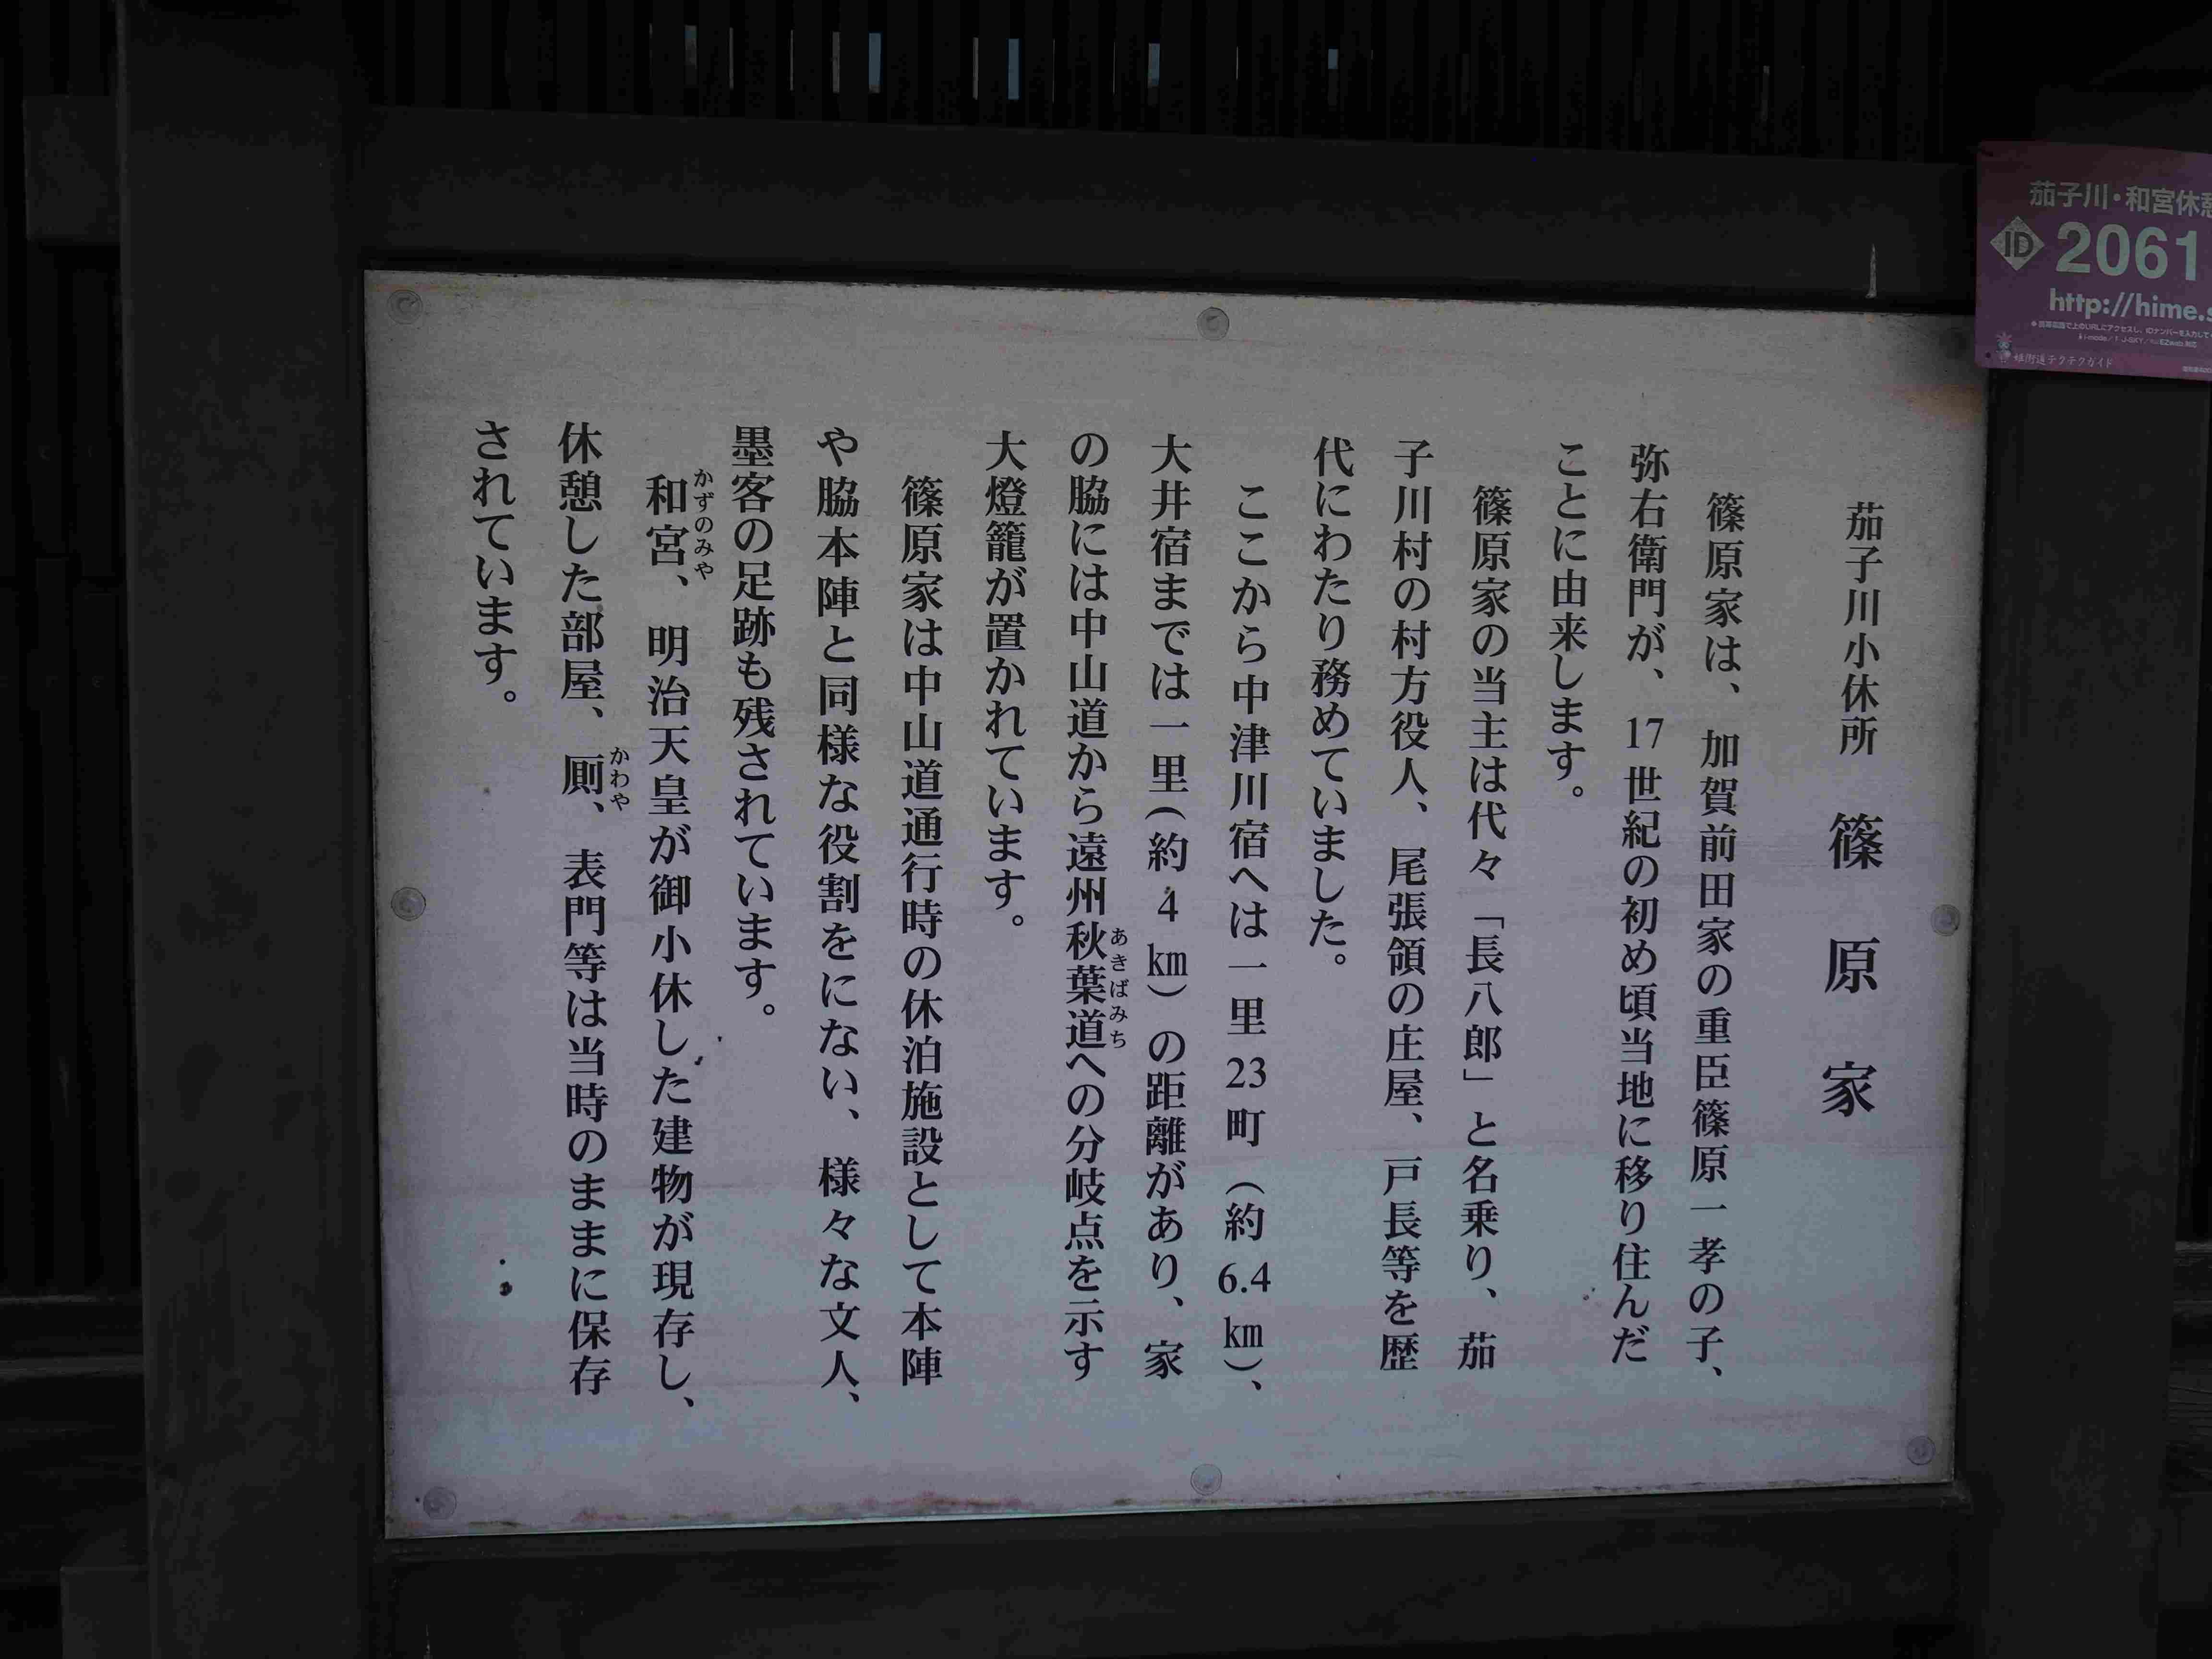 茄子川小休所　篠原家
篠原家は、加賀前田家の重臣篠原一孝の子、
弥右衛門が、17世紀の初め頃当地に移り住んだ
ことに由来します。
篠原家の当主は代々「長八郎」と名乗り、茄
子川村の村方役人、尾張領の庄屋、戸長等を歴
代にわたり務めていました。
ここから中津川宿へは一里23町（約6.4㎞）、
大井宿までは一里（約4㎞）の距離があり、家
の脇には中山道から遠州秋葉道への分岐点を示す
あきばみち
大燈籠が置かれています。
篠原家は中山道通行時の休泊施設として本陣
や脇本陣と同様な役割をにない、様々な文人、
墨客の足跡も残されています。
和宮、明治天皇が御小休した建物が現存し、
かずのみや
休憩した部屋、厠、表門等は当時のままに保存
かわや
されています。
茄子川・和宮休憩
ID 2061
http://hime.s
姫街道テクテクガイド